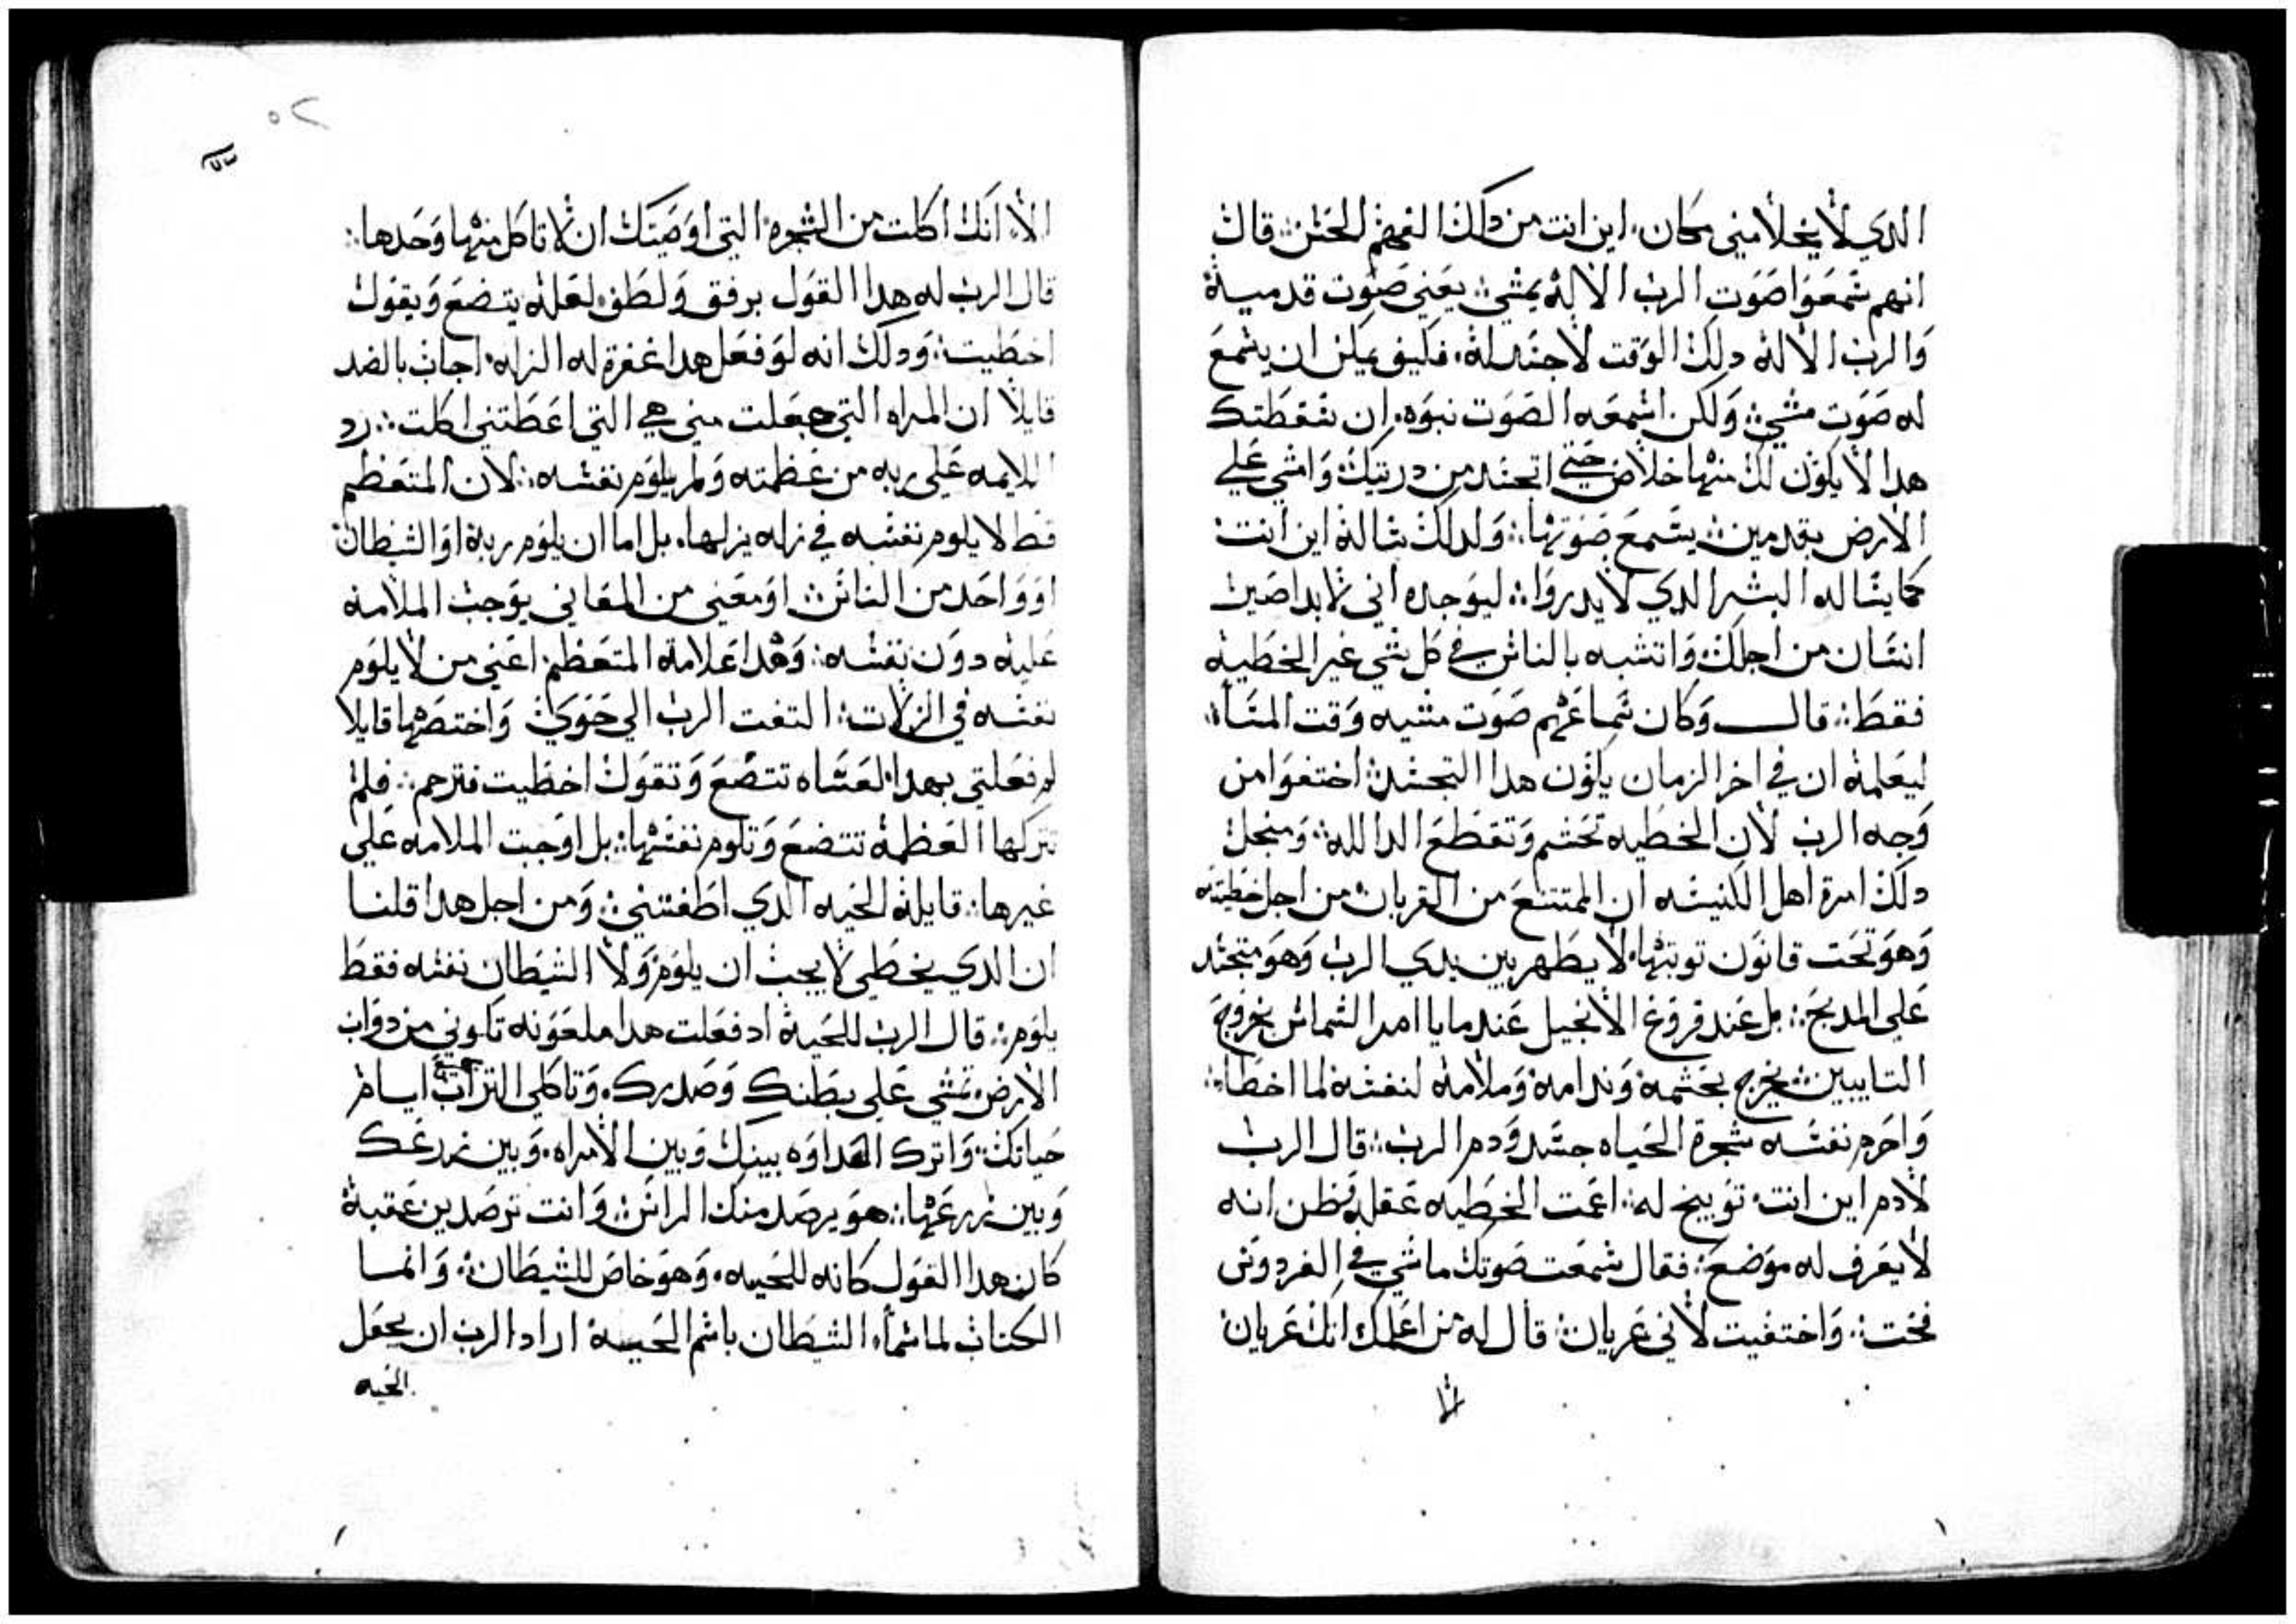 الدي لا يخلا مني مكان. اين انت من دلك الفهم الحسن قال
انهم سمعوا صوت الرب الاله يمشي يعني صوت قدميه
والرب الاله دلك الوقت لا جسد له. فكيف يمكن ان يسمع
له صوت مشي ولكن اسمعه الصوت نبوه. ان سقطتك
هدا لا يكون لك منها خلاص حتي اتجسد من دريتك وامشي علي
الارض بقدمين يسمع صوتها ولدلك ساله اين انت
كما يساله البشر الدي لا يدروا ليوجده اني لابد اصير
انسان من اجلك واتشبه بالناس في كل شي غير الخطيه
فقط قال وكان سماعهم صوت مشيه وقت المساء
ليعلمه ان في اخر الزمان يكون هدا التجسد اختفوا من
وجه الرب لان الخطيه تحشم وتقطع الداله ومنجل
دلك امرة اهل الكنيسه ان الممتنع من القربان من اجل خطيته
وهو تحت قانون توبتها لا يظهر بين يدي الرب وهو متجسد
علي المدبح بل عند فروغ الانجيل عندما يامر الشماس بخروج
التايبين يخرج بحشمه وندامه وملامه لنفسه لما اخطا
واحرم نفسه شجرة الحياه جسد ودم الرب قال الرب
لادم اين انت توبيخ له اعمت الخطيه عقله فظن انه
لا يعرف له موضع فقال سمعت صوتك ماشي في الفردوس
فخت واختفيت لاني عريان قال له من اعلمك انك عريان
الا
٥٢
الا انك اكلت من الشجره التي اوصيتك ان لا تاكل منها وحدها
قال الرب له هدا القول برفق ولطف لعله يتضع ويقول
اخطيت ودلك انه لو فعل هدا غفرة له الزله. اجاب بالضد
قايلا ان المراه التي جعلت مني هي التي اعطتني اكلت رد
اللايمه علي ربه من عظمته ولم يلوم نفسه لان المتعظم
قط لا يلوم نفسه في زله يزلها. بل اما ان يلوم ربه او الشيطان
او واحد من الناس او معني من المعاني يوجب الملامه
عليه دون نفسه وهدا علامة المتعظم اعني من لا يلوم
نفسه في الزلات التفت الرب الي حوي واختصها قايلا
لم فعلتي بهدا لعساه تتضع وتقول اخطيت فترحم فلم
تتركها العظمه تتضع وتلوم نفسها بل اوجبت الملامه علي
غيرها قايله الحيه الدي اطغتني ومن اجل هدا قلنا
ان الدي يخطي لا يجب ان يلوم ولا الشيطان نفسه فقط
يلوم قال الرب للحيه اد فعلت هدا ملعونه تكوني من دواب
الارض تمشي علي بطنك وصدرك. وتاكلي التراب جميع ايام
حياتك واترك العداوه بينك وبين الامراه. وبين زرعك
وبين زرعها هو يرصد منك الراس وانت ترصدين عقبه
كان هدا القول كانه للحيه. وهو خاص للشيطان وانما
الكتاب لما سماء الشيطان باسم الحيه اراد الرب ان يجعل
الحيه